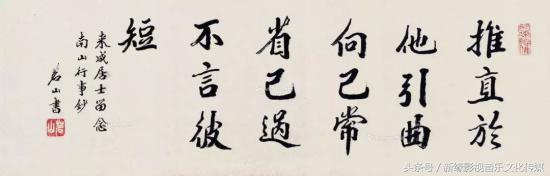 推直於
他引曲
向己常
省己過
不言彼
短
来成居士留念
南山行事鈔
若山書
头条号／新缘影视音乐文化传媒